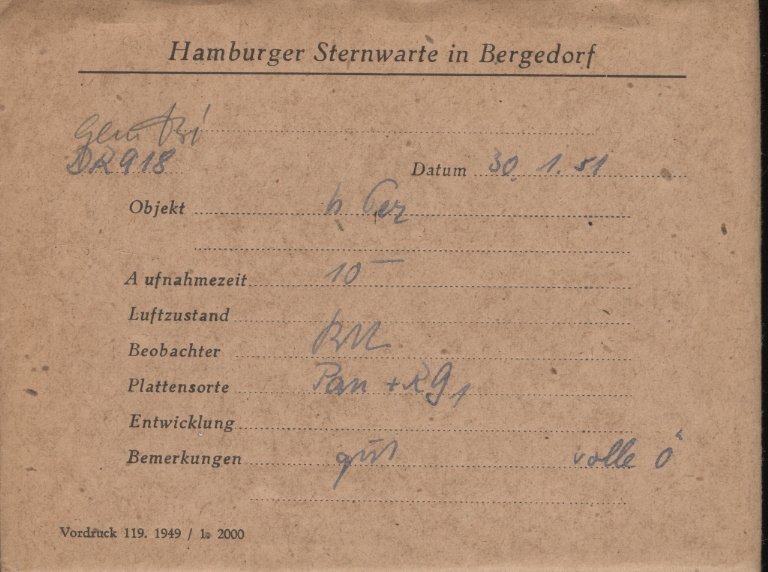 Hamburger Sternwarte in Bergedorf
DR 918
Datum 30. 1. 51
Objekt h Per
Aufnahmezeit 10
Luftzustand
Beobachter
Plattensorte Pan + RG1
Entwicklung
Bemerkungen gut volle Ö
Vordruck 119. 1949 / 1. 2000